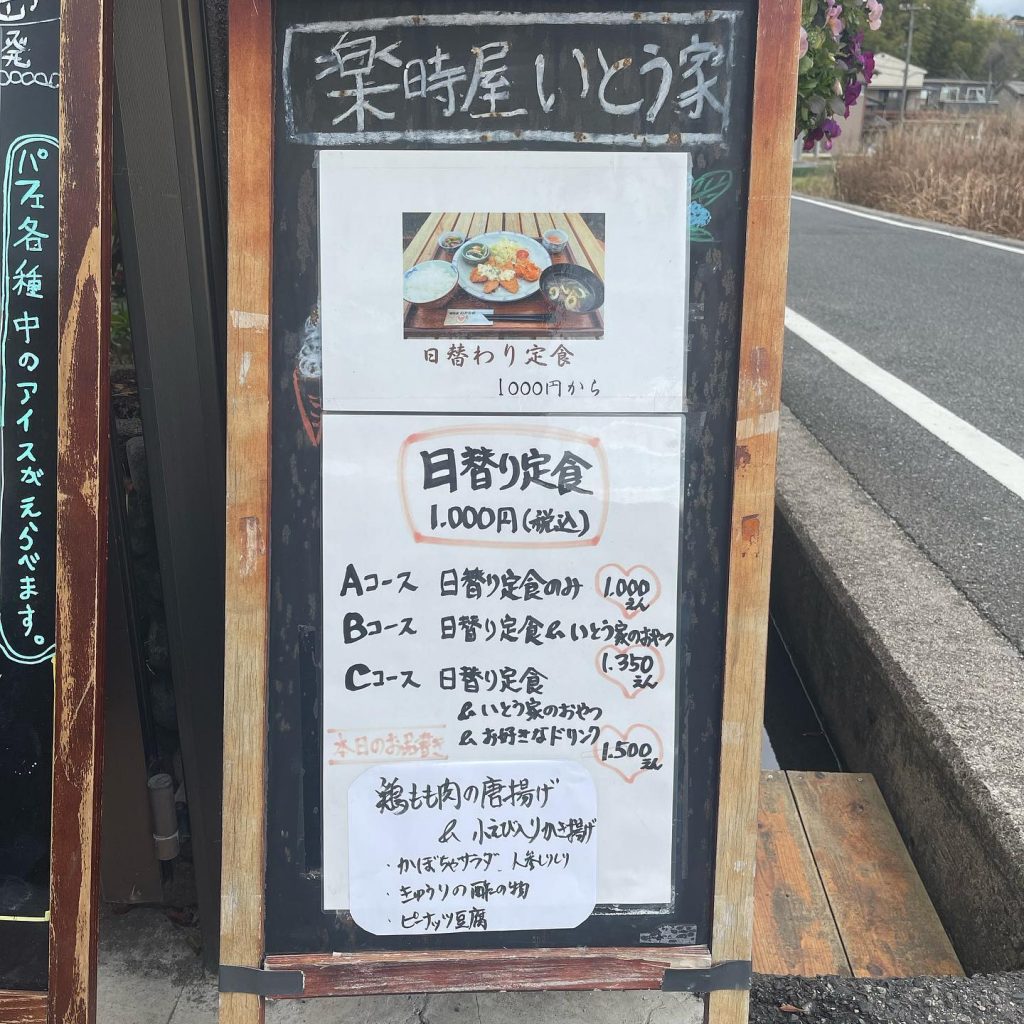 発
パフェ各種中のアイスがえらべます。
楽時屋いとう家
日替わり定食
1000円から
日替り定食
1.000円(税込)
Aコース 日替り定食のみ 1.000えん
Bコース 日替り定食&いとう家のおやつ
1.350えん
Cコース 日替り定食
&いとう家のおやつ
&お好きなドリンク
1.500えん
本日のお品書き
鶏もも肉の唐揚げ
& 小えび入りかき揚げ
・かぼちゃサラダ、人参しりしり
・きゅうりの酢の物
・ピーナッツ豆腐